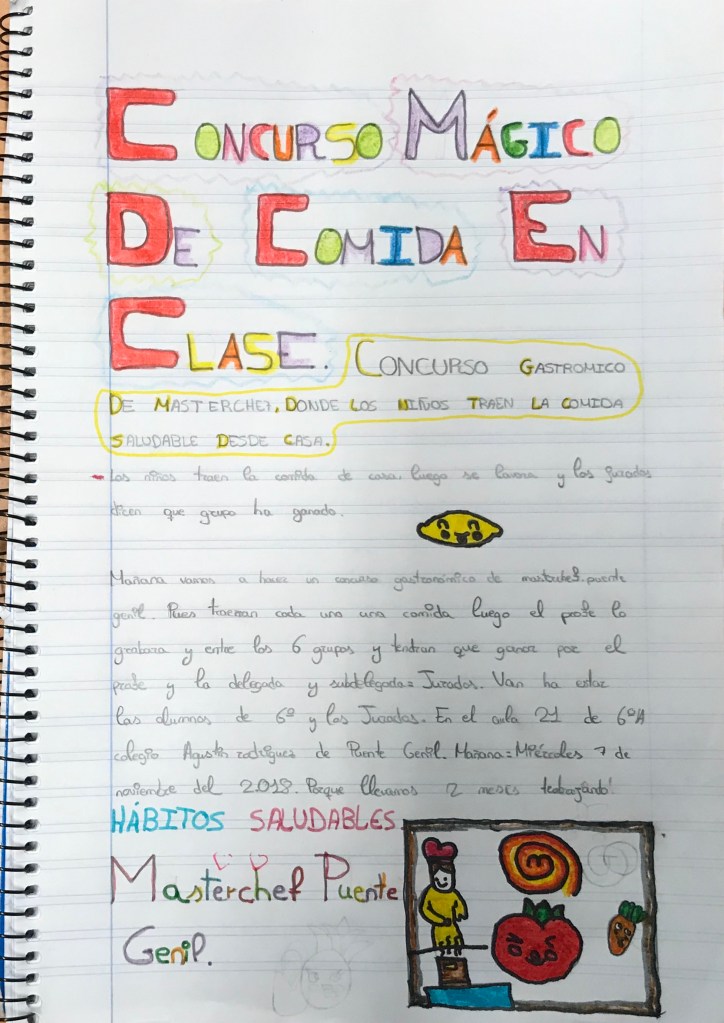 CONCURSO MÁGICO
DE COMIDA EN
CLASE. CONCURSO GASTROMICO
DE MASTERCHEF, DONDE LOS NIÑOS TRAEN LA COMIDA
SALUDABLE DESDE CASA.
- Los niños traen la comida de casa. luego se y los jurados
dicen que grupo ha ganado.
Mañana vamos a hacer un concurso gastronómico de masterchef. puente
genil. Pues traeran cada uno una comida luego el profe lo
grabara y entre los 6 grupos y tendran que ganar por el
profe y la delegada y subdelegada= Jurados. Van ha estar
los alumnos de 6º y los Jurados. En el aula 21 de 6ºA
colegio Agustin rodriguez de Puente Genil. Mañana= Miércoles 7 de
noviembre del 2.018. Porque llevamos 2 meses trabajando!
HÁBITOS SALUDABLES
Masterchef Puente
Genil.